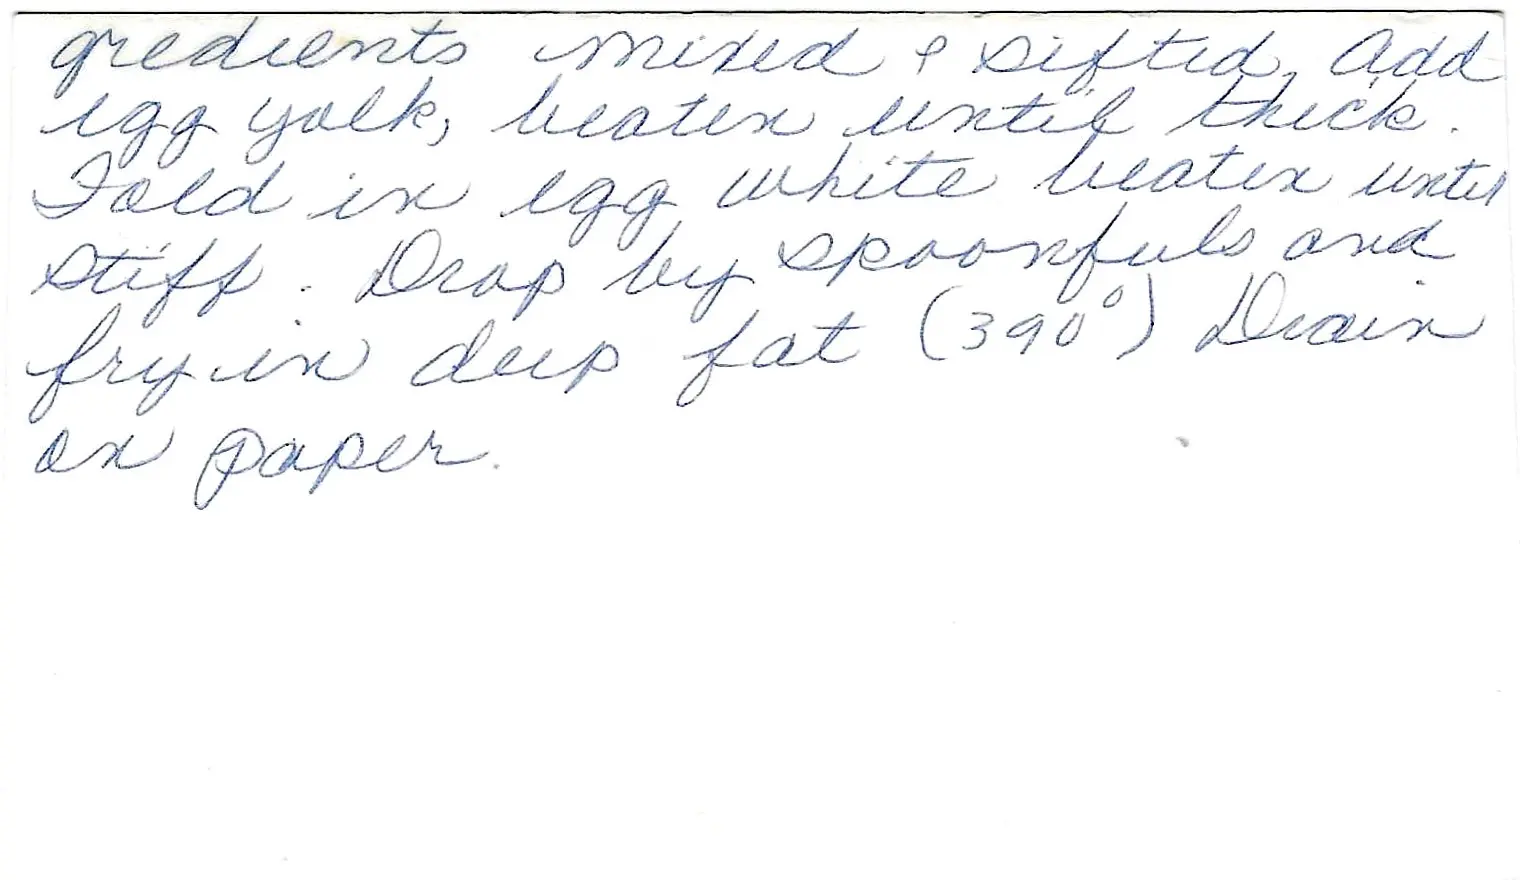 gredients mixed & sifted, add
egg yolk, beaten until thick.
Fold in egg white beaten until
stiff. Drop by spoonfuls and
fry in deep fat (390°) Drain
on paper.